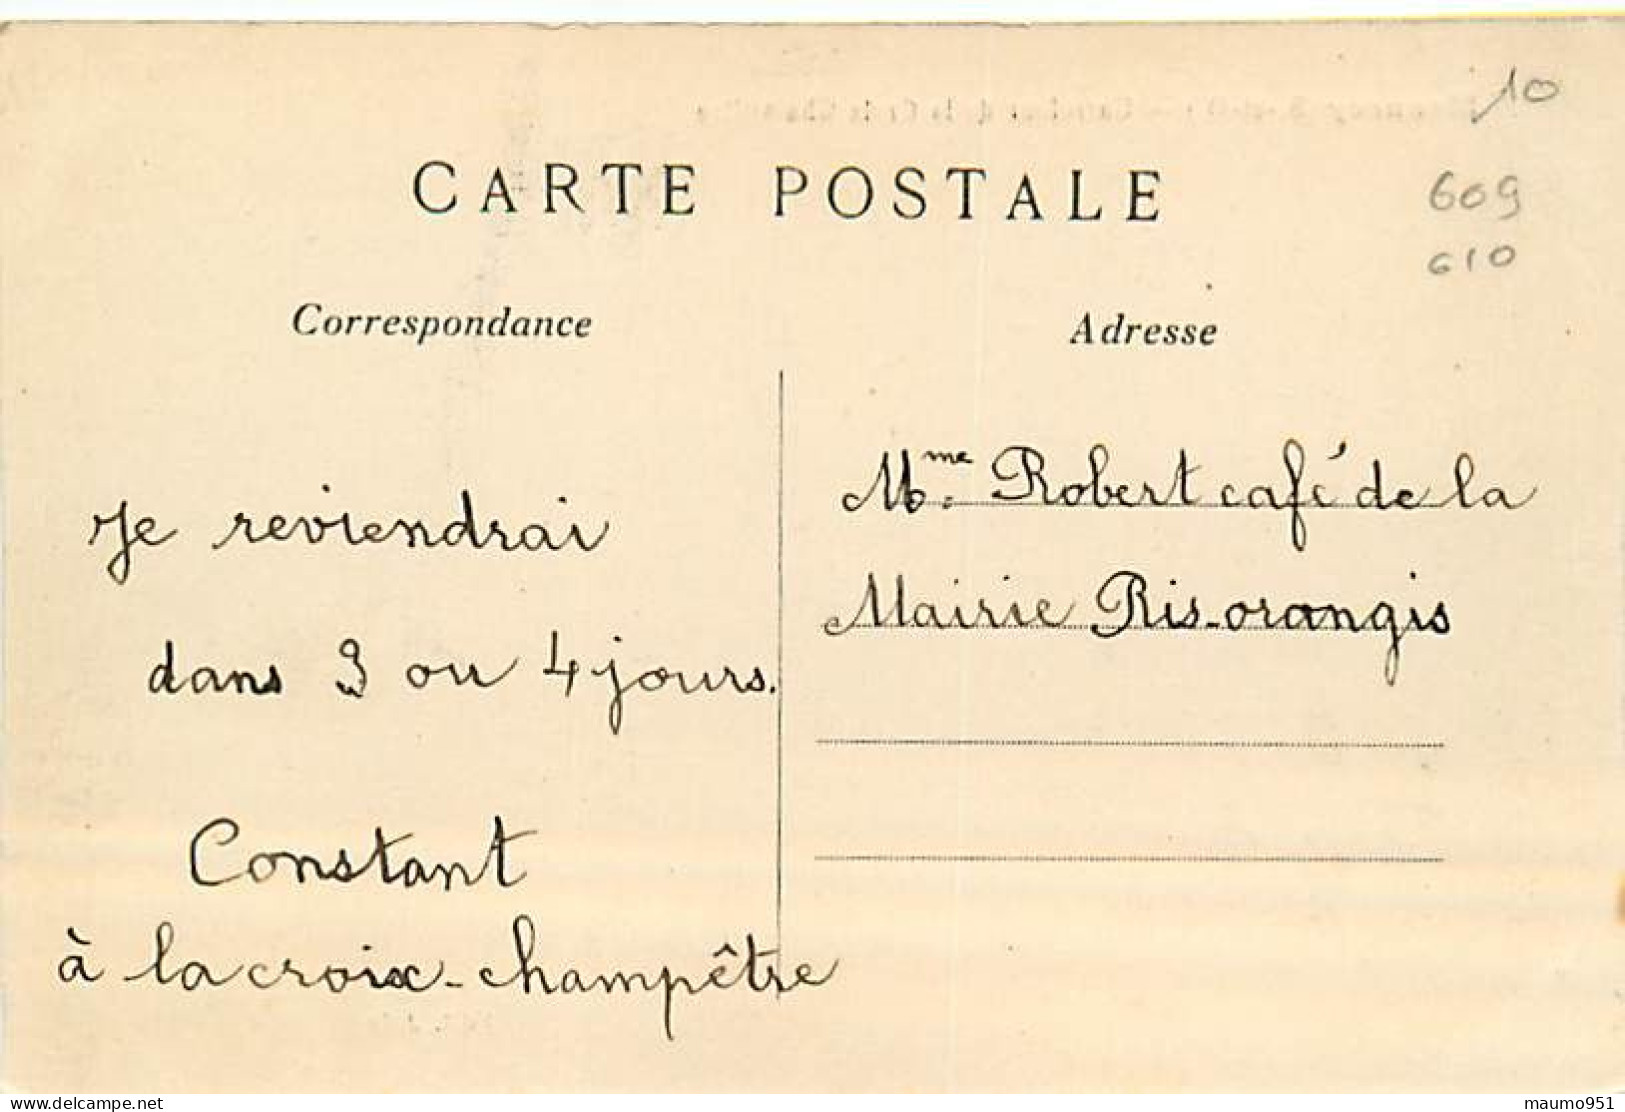 10
CARTE POSTALE
609
610
Correspondance
Je reviendrai
dans 3 ou 4 jours.
Constant
à la croix-champêtre
Adresse
Mme. Robert café de la
Mairie Ris-orangis
maumo951